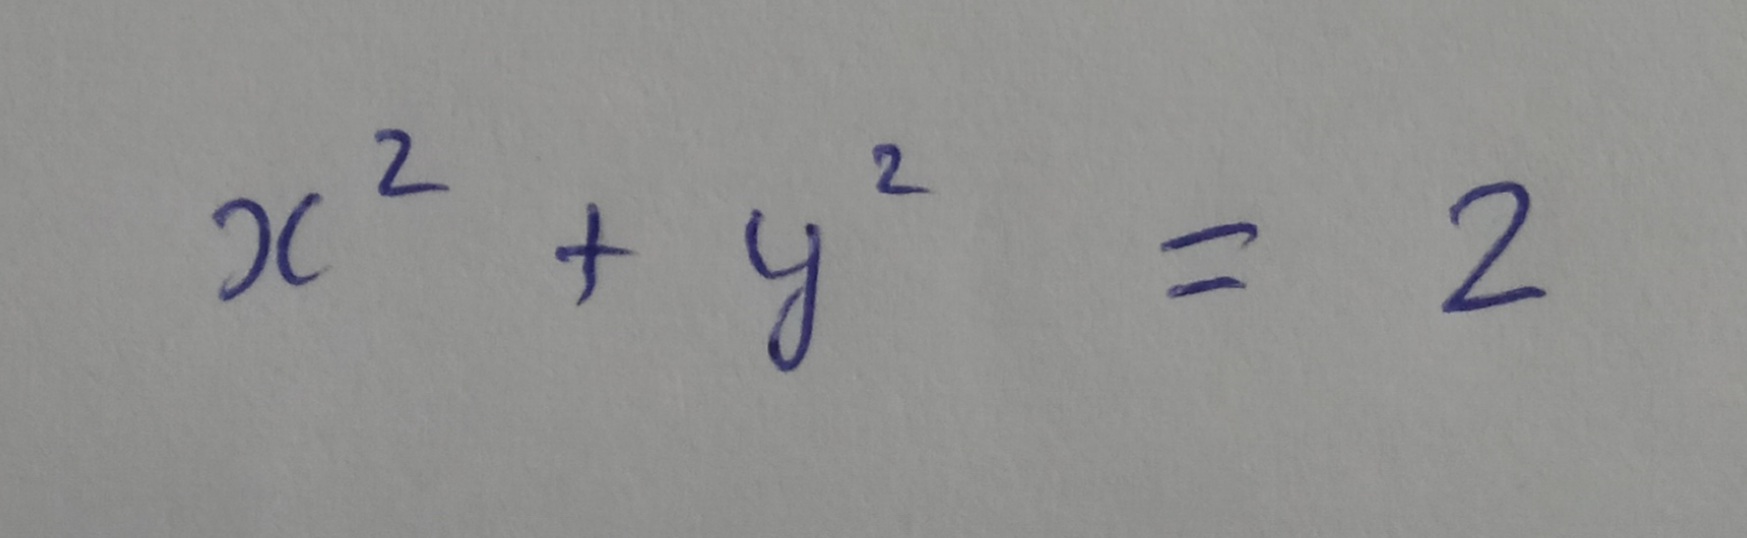 x² + y² = 2